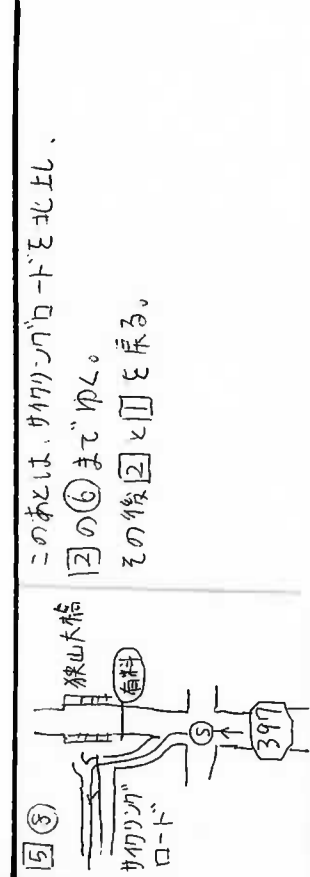 5 ⑧
狭山大橋
有料
サイクリング
ロード
S
397
このあとは、サイクリングロードを北上し、
2の⑥までゆく。
その後2と1を戻る。